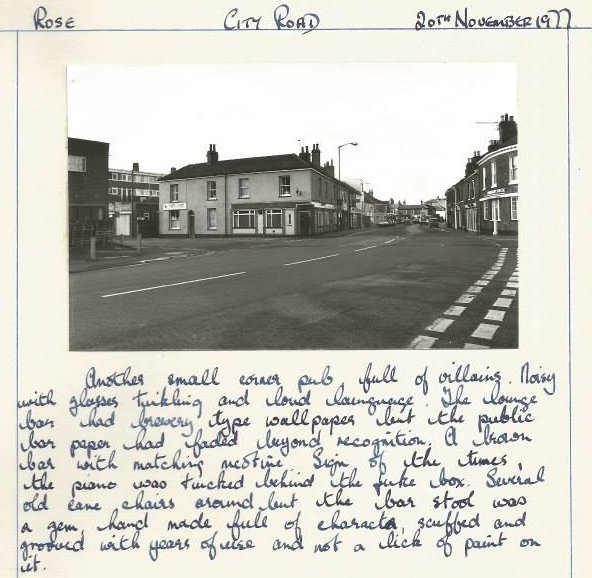 Rose City Road 20th November 1977
Another small corner pub full of villains. Noisy
with glasses tinkling and loud launguage. The lounge
bar had brewery type wallpaper but the public
bar paper had faded beyond recognition. A brown
bar with matching nicotine Sign of the times,
the piano was tucked behind the juke box. Several
old cane chairs around but the bar stool was
a gem, hand made full of character, scuffed and
grooved with years of use and not a lick of paint on
it.